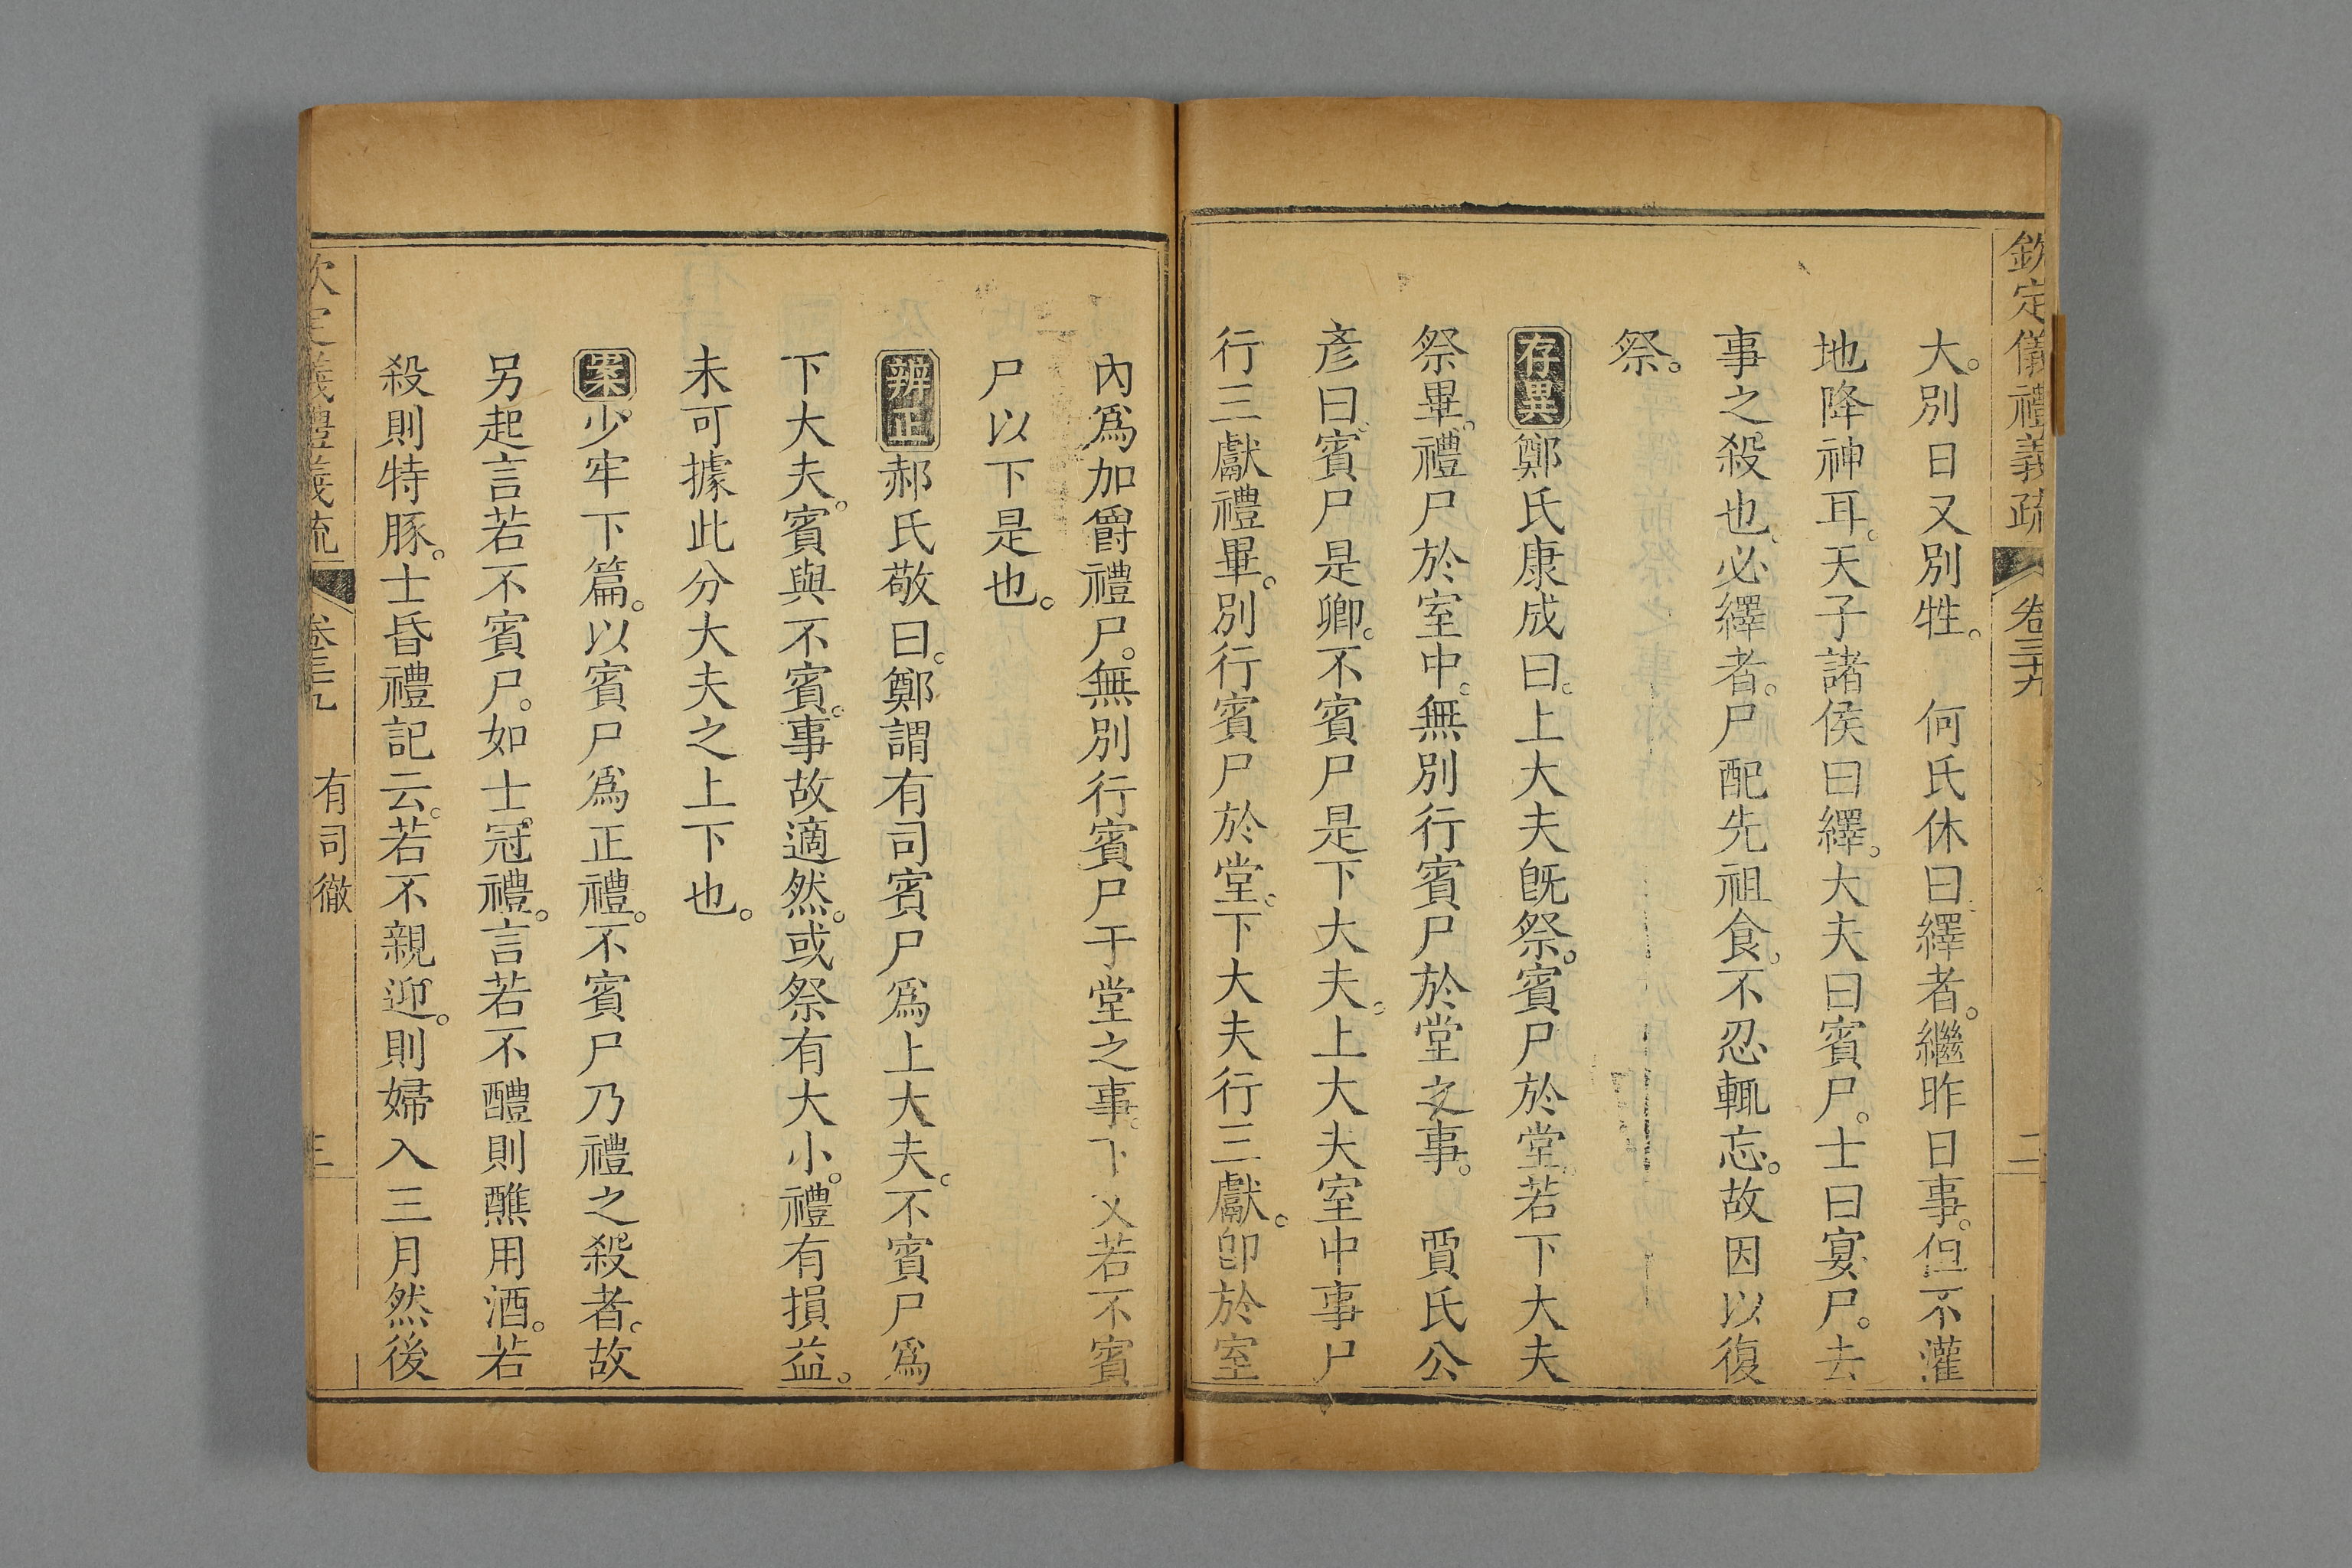 欽定儀禮義疏 卷三十九 二
大。別日又別牲。　何氏休曰繹者。繼昨日事。但不灌
地降神耳。天子諸侯曰繹。大夫曰賓尸。士曰宴尸。去
事之殺也。必繹者。尸配先祖食。不忍輒忘。故因以復
祭。
存異鄭氏康成曰。上大夫旣祭。賓尸於堂。若下大夫
祭畢。禮尸於室中。無別行賓尸於堂之事。　賈氏公
彥曰。賓尸是卿。不賓尸是下大夫。上大夫室中事尸
行三獻禮畢。別行賓尸於堂。下大夫行三獻。卽於室
內爲加爵禮尸。無別行賓尸于堂之事。下文若不賓
尸以下是也。
辨正郝氏敬曰。鄭謂有司賓尸爲上大夫。不賓尸爲
下大夫。賓與不賓。事故適然。或祭有大小。禮有損益。
未可據此分大夫之上下也。
案少牢下篇。以賓尸爲正禮。不賓尸乃禮之殺者。故
另起言若不賓尸。如士冠禮。言若不醴則醮用酒。若
殺則特豚。士昏禮記云。若不親迎。則婦入三月然後
欽定儀禮義疏 卷三十九 有司徹 三